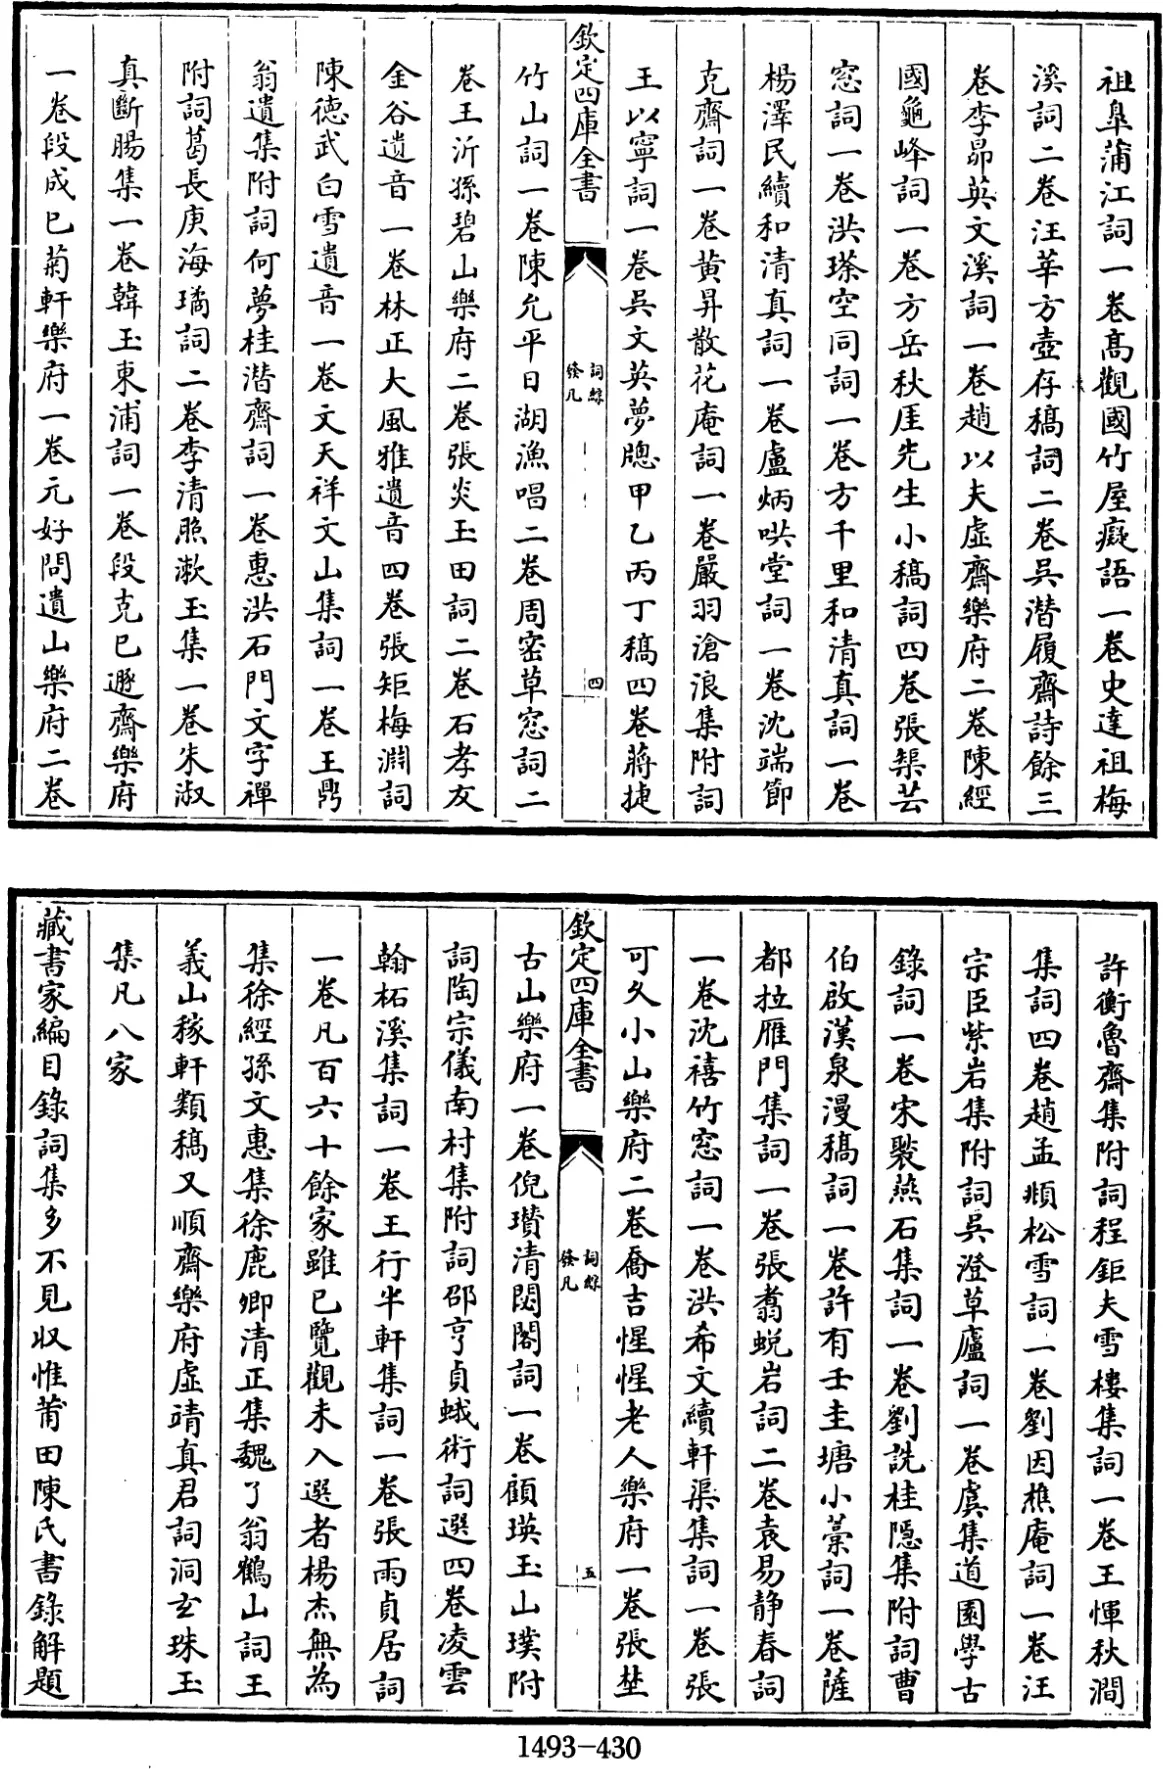 祖臯蒲江詞一卷髙觀國竹屋癡語一卷史達祖梅
溪詞二卷汪莘方壺存稿詞二卷吳潛履齋詩餘三
卷李昴英文溪詞一卷趙以夫虛齋樂府二卷陳經
國龜峰詞一卷方岳秋厓先生小稿詞四卷張榘芸
窓詞一卷洪瑹空同詞一卷方千里和清真詞一卷
楊澤民續和清真詞一卷盧炳哄堂詞一卷沈端節
克齋詞一卷黃昇散花庵詞一卷嚴羽滄浪集附詞
王以寧詞一卷吳文英夢牕甲乙丙丁稿四卷蔣捷
欽定四庫全書
詞綜
發凡
四
竹山詞一卷陳允平日湖漁唱二卷周密草窓詞二
卷王沂孫碧山樂府二卷張炎玉田詞二卷石孝友
金谷遺音一卷林正大風雅遺音四卷張矩梅淵詞
陳德武白雪遺音一卷文天祥文山集詞一卷王鼎
翁遺集附詞何夢桂潛齋詞一卷惠洪石門文字禪
附詞葛長庚海璚詞二卷李清照漱玉集一卷朱淑
真斷腸集一卷韓玉東浦詞一卷段克巳遯齋樂府
一卷段成巳菊軒樂府一卷元好問遺山樂府二卷
許衡魯齋集附詞程鉅夫雪樓集詞一卷王惲秋澗
集詞四卷趙孟頫松雪詞一卷劉因樵庵詞一卷汪
宗臣紫岩集附詞吳澄草廬詞一卷虞集道園學古
錄詞一卷宋褧燕石集詞一卷劉詵桂隱集附詞曹
伯啟漢泉漫稿詞一卷許有壬圭塘小藁詞一卷薩
都拉雁門集詞一卷張翥蛻岩詞二卷袁易靜春詞
一卷沈禧竹窓詞一卷洪希文續軒渠集詞一卷張
可久小山樂府二卷喬吉惺惺老人樂府一卷張埜
欽定四庫全書
詞綜
發凡
五
古山樂府一卷倪瓚清閟閣詞一卷顧瑛玉山璞附
詞陶宗儀南村集附詞邵亨貞蛾術詞選四卷凌雲
翰柘溪集詞一卷王行半軒集詞一卷張雨貞居詞
一卷凡百六十餘家雖已覽觀未入選者楊杰無為
集徐經孫文惠集徐鹿卿清正集魏了翁鶴山詞王
義山稼軒類稿又順齋樂府虛靖真君詞洞玄珠玉
集凡八家
藏書家編目錄詞集多不見収惟莆田陳氏書錄解題
1493-430